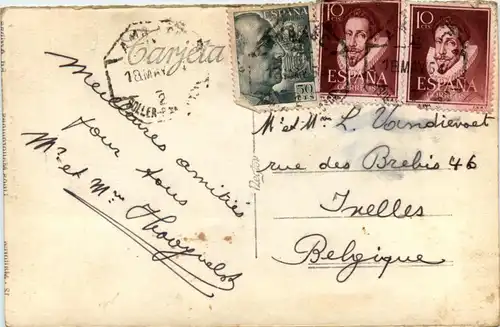 Tarjeta
18 MAY
SOLLER
ESPAÑA
50
CTS
10
CTS
ESPAÑA
10
CTS
ESPAÑA
18 MAY
Meilleures amitiés
pour tous
Mr et Mme
Mr et Mme L. Vandievoet
rue des Brebis 46
Ixelles
Belgique